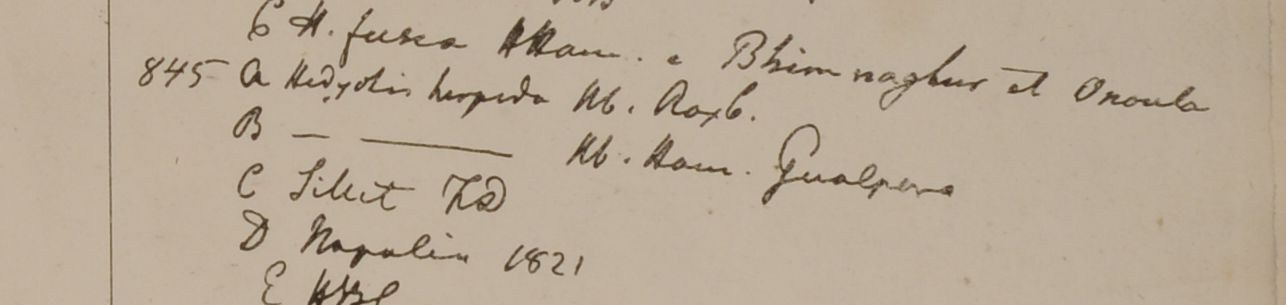 C H. fusca HHam. e Bhimnaghur et Onoula
845 a Hedyotis hispida Hb. Roxb.
B — ——— Hb. Ham. Gualpara
C Sillet FD
D Napalia 1821
E HBC